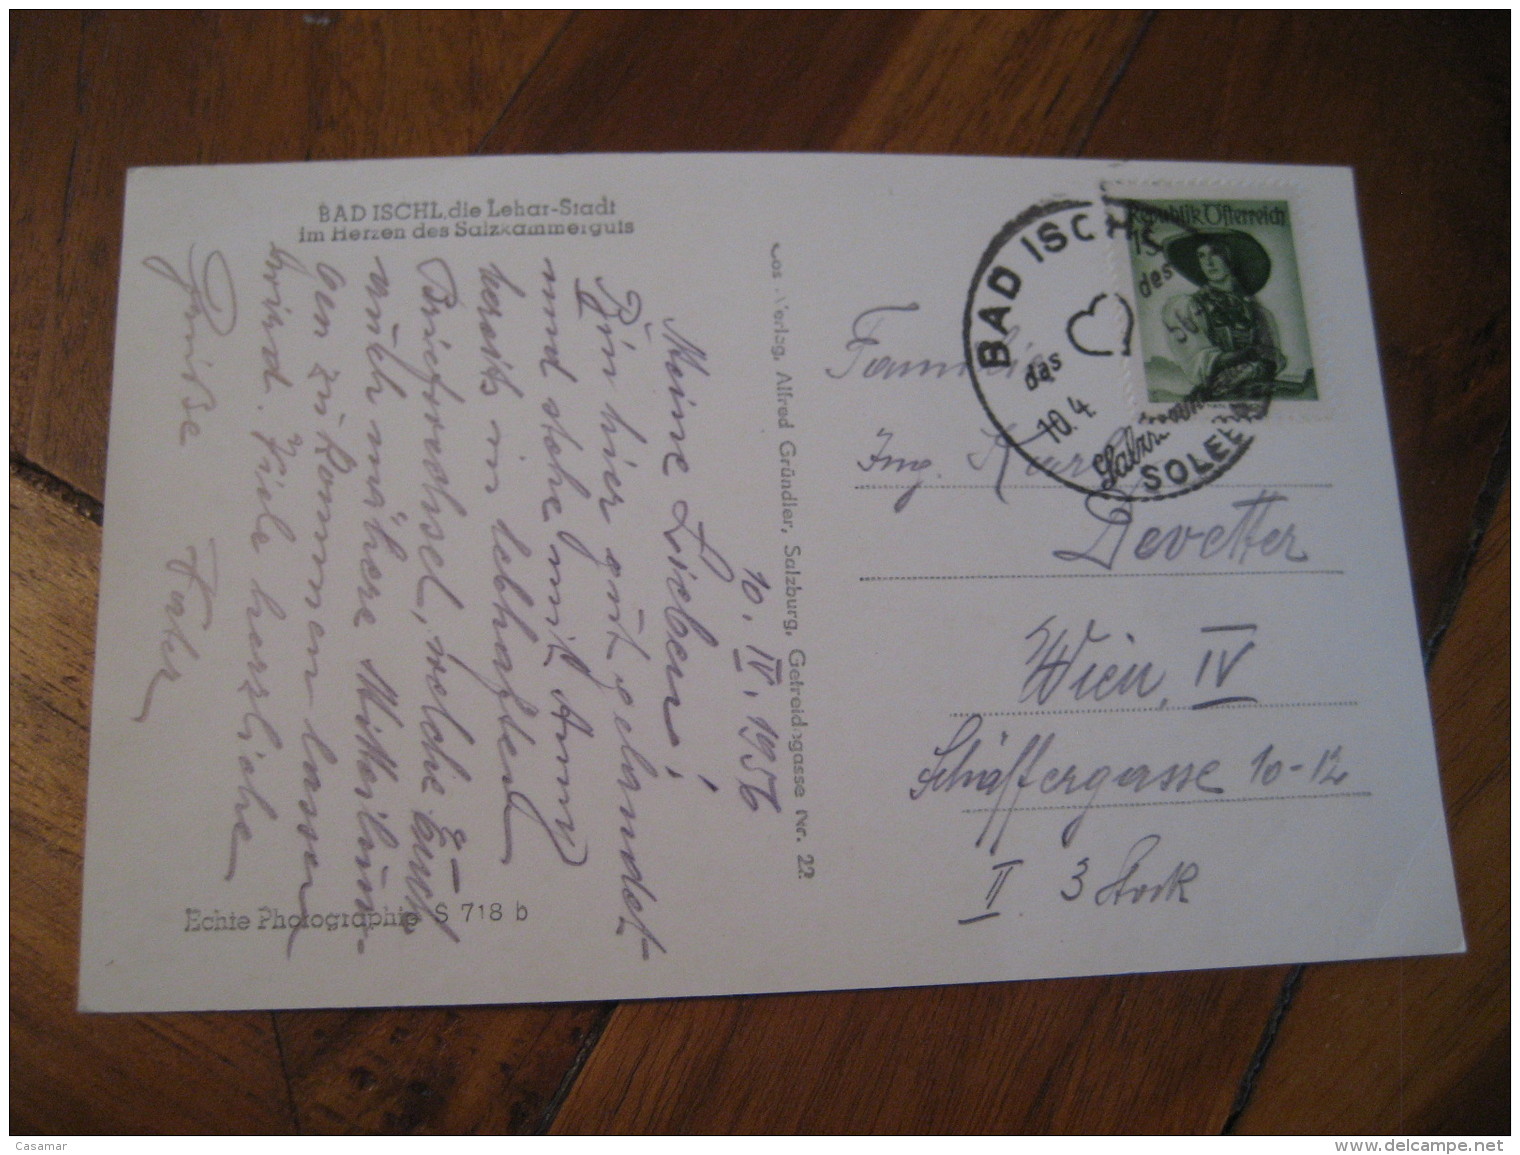 BAD ISCHL, die Lehar-Stadt
im Herzen des Salzkammerguts
10. IV. 1956
Meine Lieben!
Bin hier gut gelandet
und stehe mit Anny
bereits in lebhaftem
Briefwechsel, welche Euch
auch nähere Mitteilun-
gen zukommen lassen
wird. Viele herzliche
Grüße Vater
Echte Photographie S 718 b
Cos-Verlag, Alfred Gründler, Salzburg, Getreidegasse Nr. 22
Republik Österreich
BAD ISCHL
das
des
10.4.
SOLE
Familie
Ing. Karl
Devetter
Wien, IV
Schäffergasse 10-12
II. 3 Stock
Casamar
http://www.delcampe.net